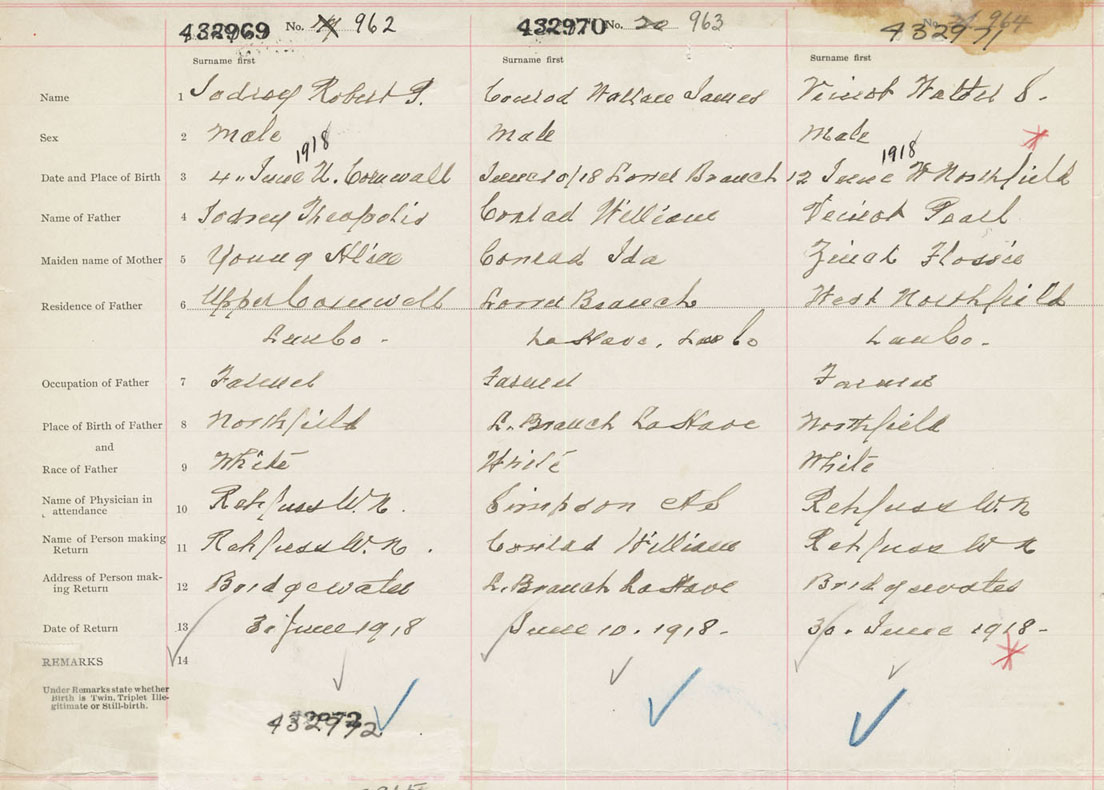 432969 No. 962 432970 No. 20 963 432971 No. 964
Surname first Surname first Surname first
Name 1 Jodrey Robert P. Conrad Wallace James Veinot Walter S.
Sex 2 Male Male Male
1918 1918
Date and Place of Birth 3 4" June U. Cornwall June 10/18 Lower Branch 12 June W Northfield
Name of Father 4 Jodrey Theopolis Conrad William Veinot Pearl
Maiden name of Mother 5 Young Alice Conrad Ida Zinck Flossie
Residence of Father 6 Upper Cornwall Lower Branch West Northfield
Lun Co. LaHave, Lun Co Lun Co.
Occupation of Father 7 Farmer Farmer Farmer
Place of Birth of Father 8 Northfield L. Branch LaHave Northfield
and
Race of Father 9 White White White
Name of Physician in
attendance 10 Rehfuss W. N. Simpson Rehfuss W. N
Name of Person making
Return 11 Rehfuss W. N. Conrad William Rehfuss W N
Address of Person mak-
ing Return 12 Bridgewater L. Branch LaHave Bridgewater
Date of Return 13 June 1918 June 10. 1918- 30. June 1918-
REMARKS 14
Under Remarks state whether
Birth is Twin, Triplet Ille-
gitimate or Still-birth.
432972